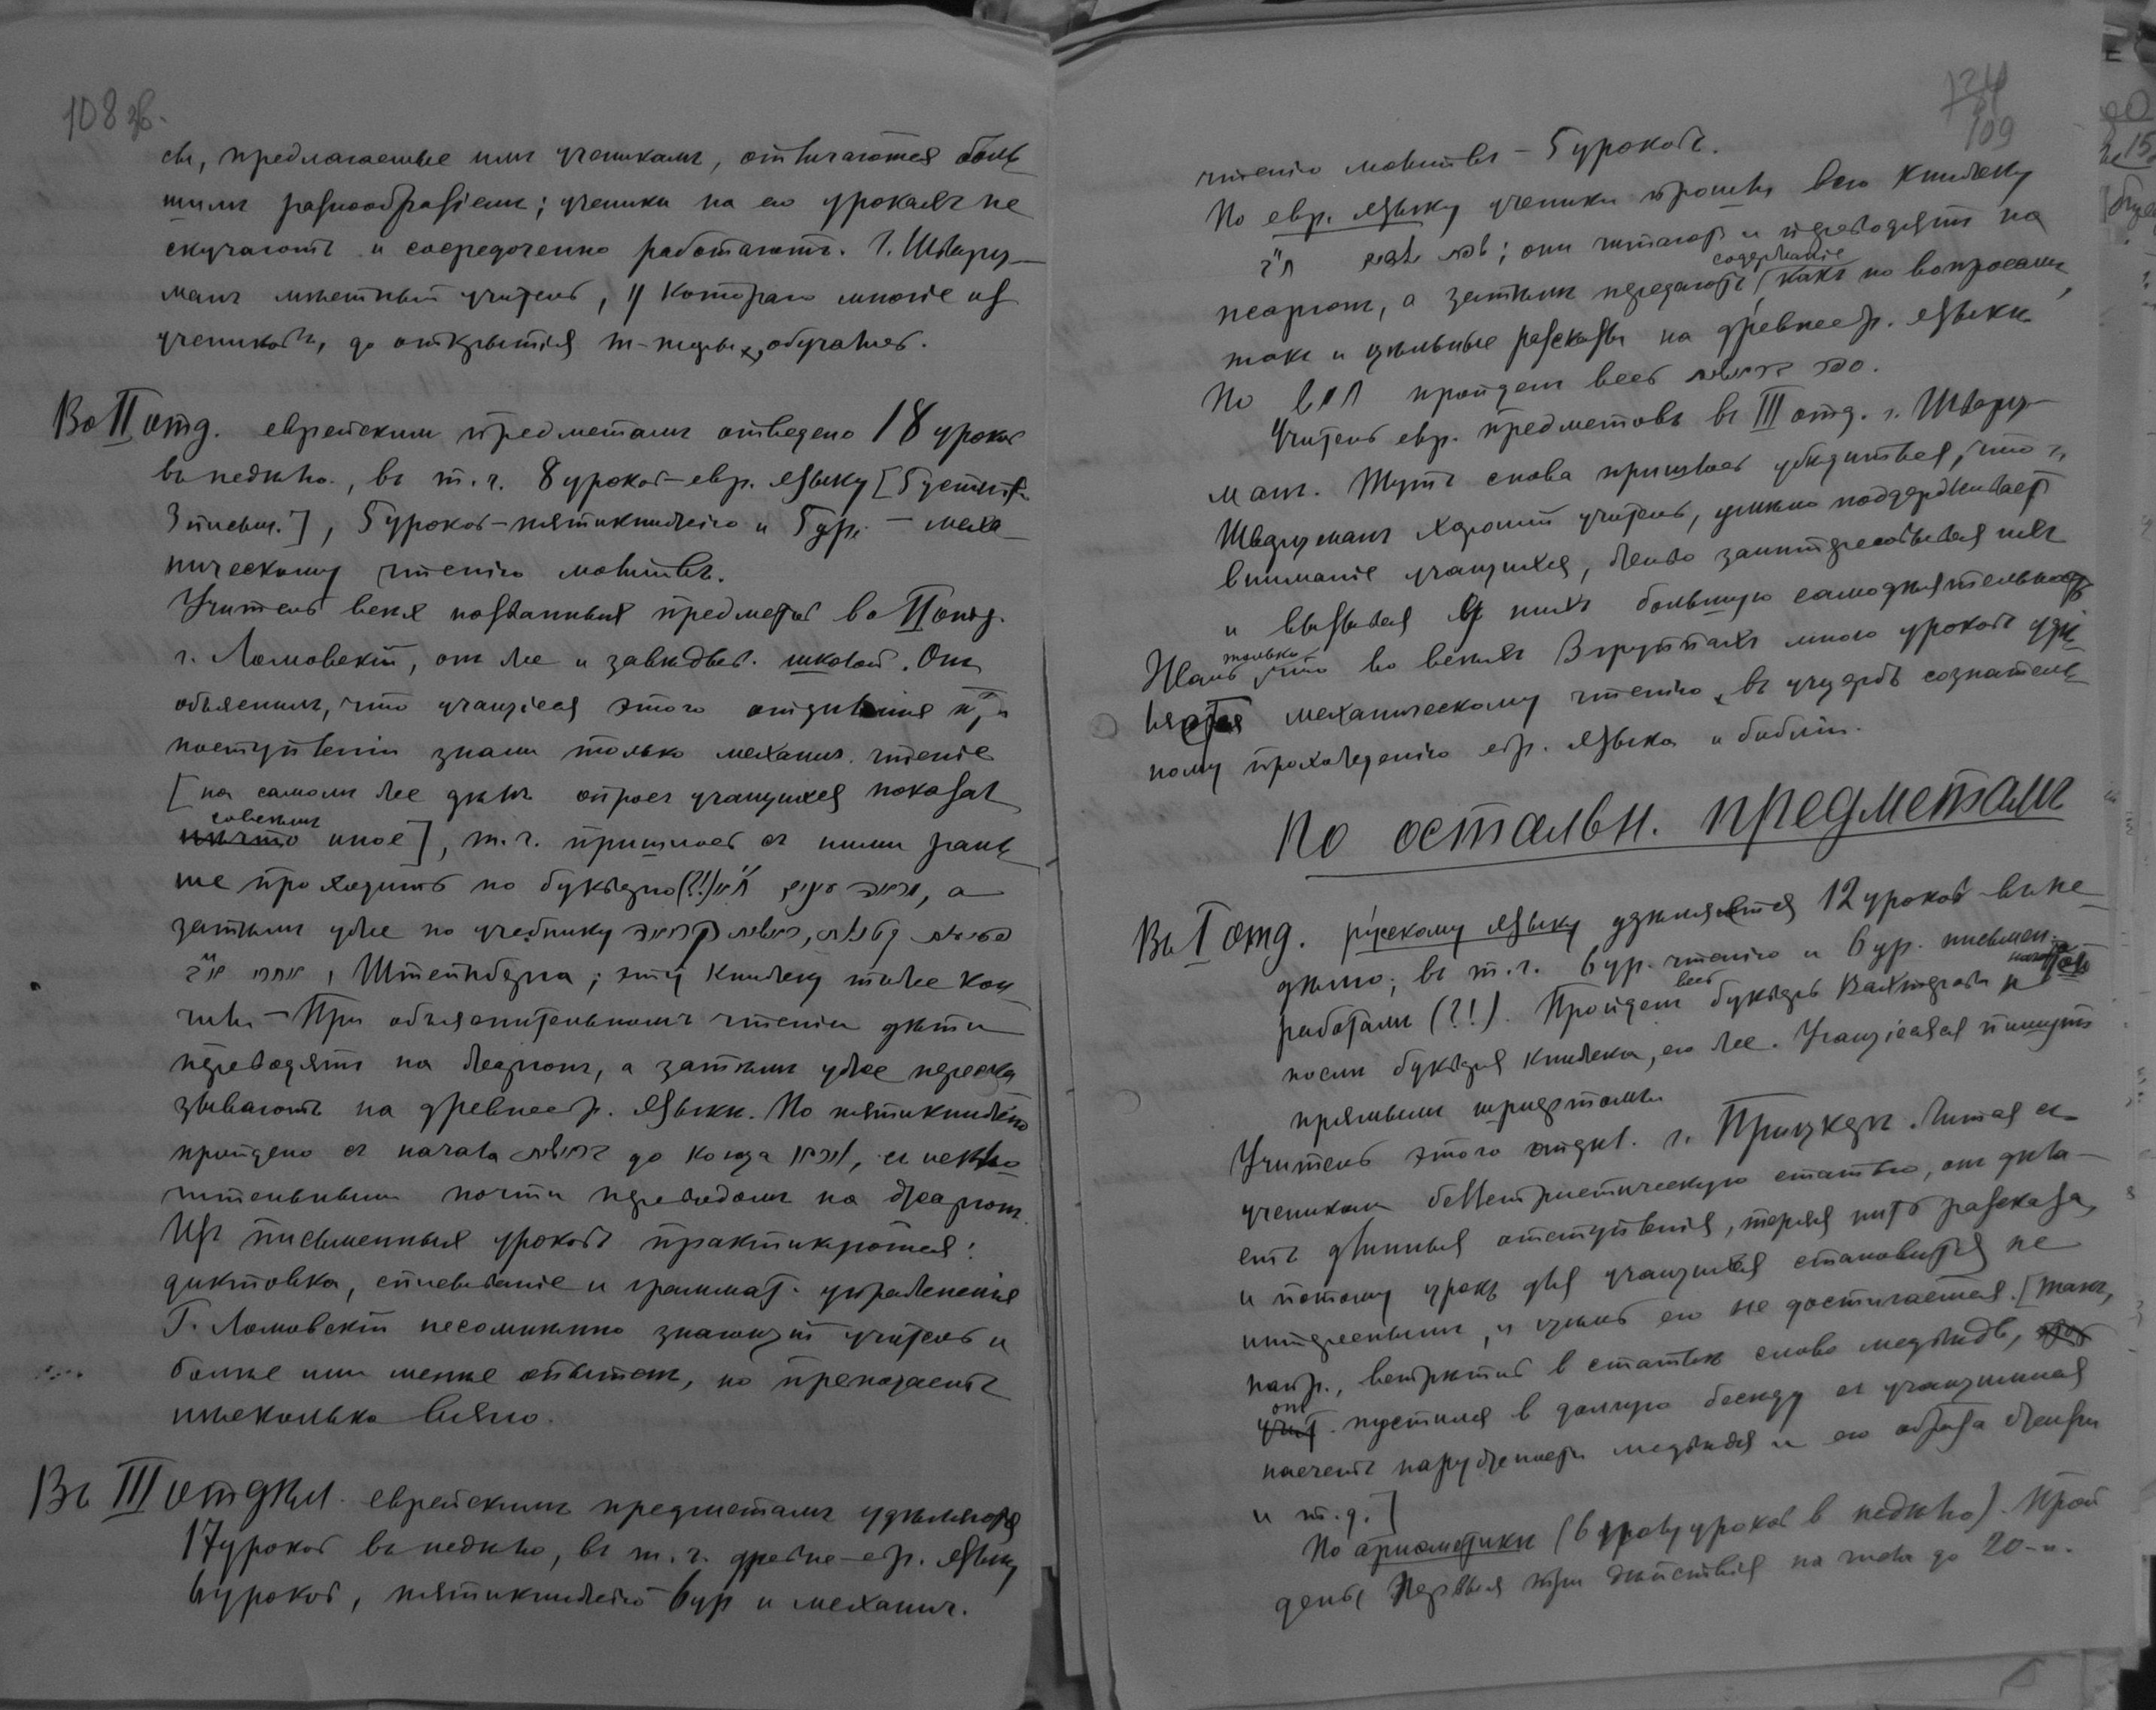 108 об.
сы, предлагаемые имъ ученикамъ, отличаются боль
шимъ разнообразіемъ; ученики на его урокахъ не
скучаютъ и сосредоченно работаютъ. Г. Шварц-
манъ мѣстный учитель, у котораго многіе изъ
учениковъ, до открытія т-торы, обучались.
Во II отд. еврейскимъ предметамъ отведено 18 уроковъ
въ недѣлю, въ т. ч. 8 уроковъ - евр. языку [5 устн. +
3 письм.], 5 уроковъ - пятикнижію и 5 ур. - меха
ническому чтенію молитвъ.
Учитель всѣхъ названныхъ предметовъ во II отд.
г. Ломовскій, онъ же и завѣдыв. школой. Онъ
объяснилъ, что учащіеся этого отдѣленія при
поступленіи знали только механич. чтеніе
[на самомъ же дѣлѣ опросъ учащихся показалъ
совсѣмъ
иное], т. ч. пришлось съ ними рань
ше проходить по букварю (?!), а
затѣмъ уже по учебнику
ח"א, Штейнберга; эту книжку тоже кон
чили - При объяснительномъ чтеніи дѣти
переводятъ на жаргонъ, а затѣмъ уже переска
зываютъ на древнеевр. языкѣ. По пятикнижію
пройдено съ начала בראשית до конца, съ исклю
чительнымъ почти переводомъ на жаргонъ.
Изъ письменныхъ уроковъ практикуются:
диктовка, списываніе и граммат. упражненія
Г. Ломовскій несомнѣнно знающій учитель и
болѣе или менѣе опытенъ, но преподаетъ
нѣсколько вяло.
Въ III отдѣл. еврейскимъ предметамъ удѣляются
17 уроковъ въ недѣлю, въ т. ч. древне-евр. языку
6 уроковъ, пятикнижію 6 ур и механич.
109
чтенію молитвъ - 5 уроковъ.
По евр. языку ученики прошли всю книжку
ח"ג; они читаютъ и переводятъ на
содержаніе
жаргонъ, а затѣмъ передаютъ, какъ по вопросамъ,
такъ и цѣльные разсказы на древнеевр. языкѣ
По חומש пройденъ весь ספר בראשית.
Учитель евр. предметовъ въ III отд. г. Шварц-
манъ. Тутъ снова пришлось убѣдиться, что г.
Шварцманъ хорошій учитель, умѣло поддерживаетъ
вниманіе учащихся, живо заинтересовывая ихъ
и вызывая у нихъ большую самодѣятельность
только
Жаль, что во всѣхъ 3 группахъ много уроковъ удѣ
ляется механическому чтенію, въ ущербъ сознатель
ному прохожденію евр. языка и библіи.
По остальн. предметамъ
Въ I отд. русскому языку удѣляется 12 уроковъ въ не-
дѣлю; въ т. ч. 6 ур. чтенію и 6 ур. письмен.
весь
работамъ (?!). Пройденъ букварь Вахтерова и
послѣ букваря книжка, его же. Учащіеся пишутъ
прямымъ шрифтомъ
Учитель этого отдѣл. г. Прицкеръ. Читая съ
ученикам беллетристическую статью, онъ дѣла-
етъ длинныя отступленія, теряя нить разсказа,
и потому урокъ для учащихся становится не
интереснымъ, и цѣль его не достигается. [Такъ,
напр., встрѣтивъ в статьѣ слово медвѣдь,
онъ
пустился в долгую бесѣду съ учащимися
насчетъ наружности медвѣдя и его образа жизни
и т. д.]
По ариөметикѣ (6 уроковъ в недѣлю). Прой
дены первыя три дѣйствія на числа до 20-и.